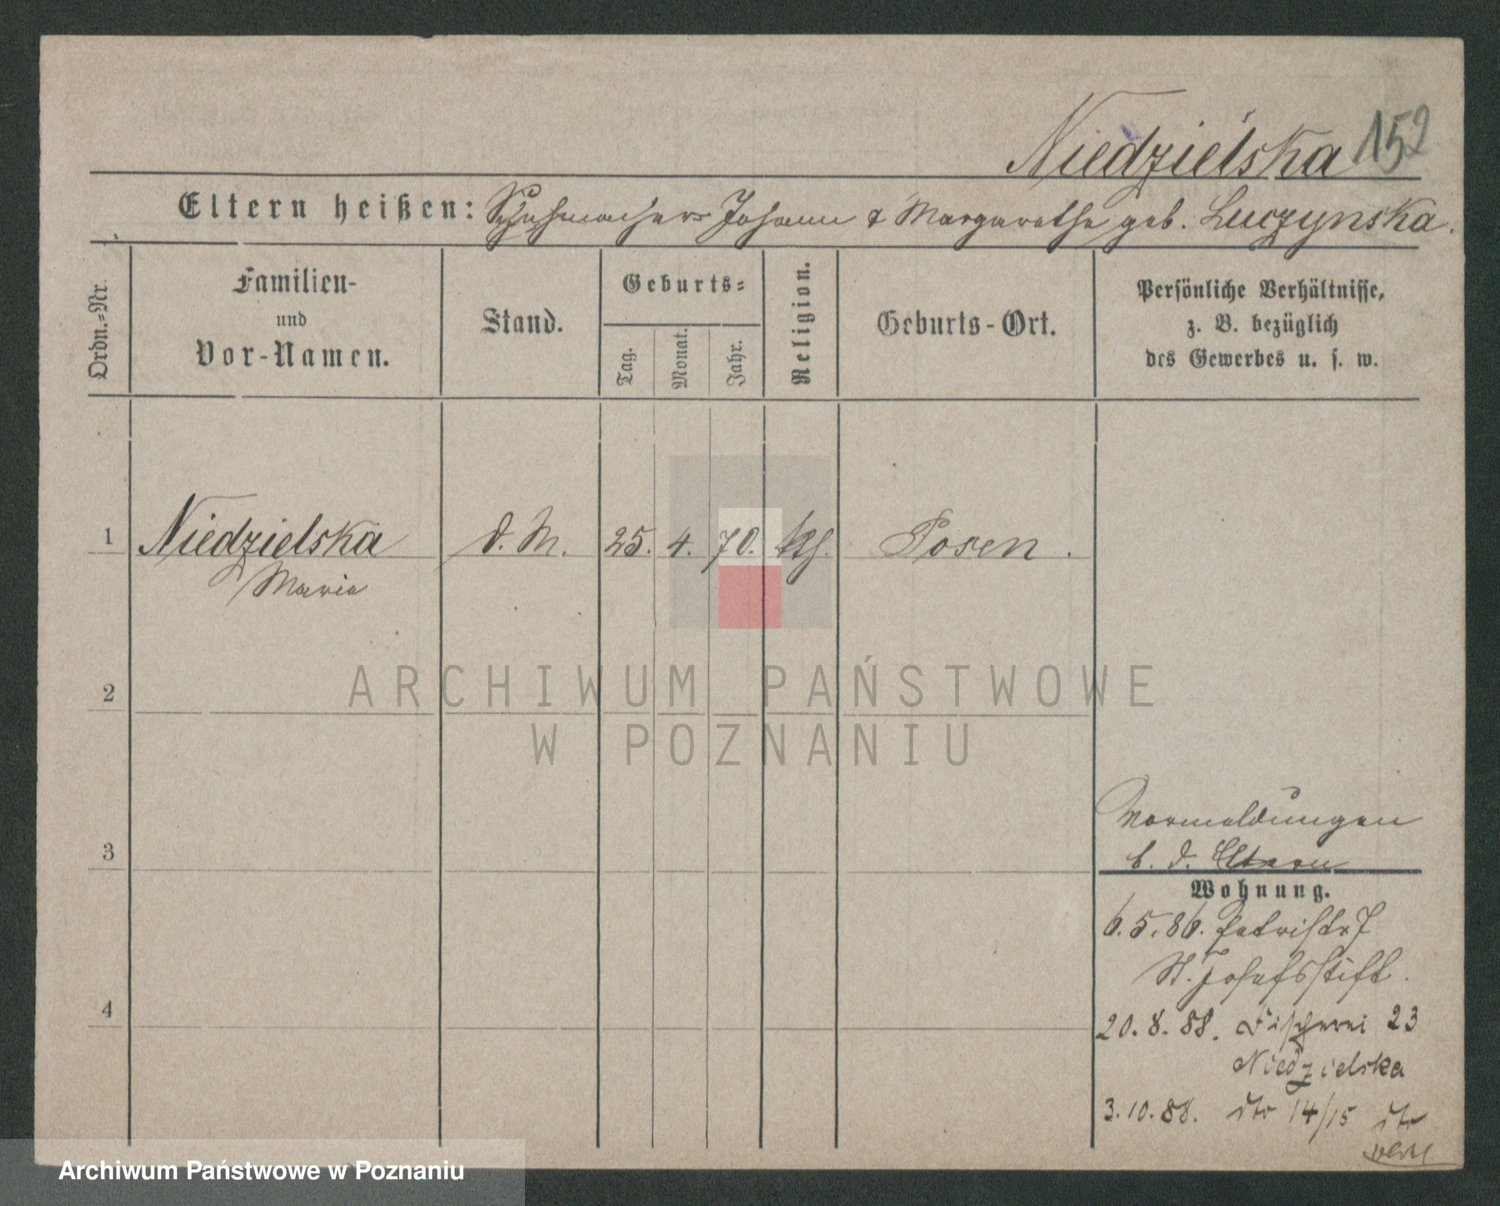 Niedzielska 152
Eltern heißen: Schuhmachers Johann & Margarethe geb. Luczynska.
Ordn.=Nr.
Familien-
und
Vor-Namen.
Stand.
Geburts=
Tag.
Monat.
Jahr.
Religion.
Geburts-Ort.
Persönliche Verhältnisse,
z. B. bezüglich
des Gewerbes u. s. w.
1 Niedzielska d. M. 25. 4. 70. kth. Posen.
Maria
2
ARCHIWUM PAŃSTWOWE
W POZNANIU
3
Vormeldungen
b. d. Eltern
Wohnung.
6.5.86. Petristr 7
St. Josefsstift.
4
20.8.88. Fischerei 23
Niedzielska
3.10.88. dto 14/15 dto
Archiwum Państwowe w Poznaniu